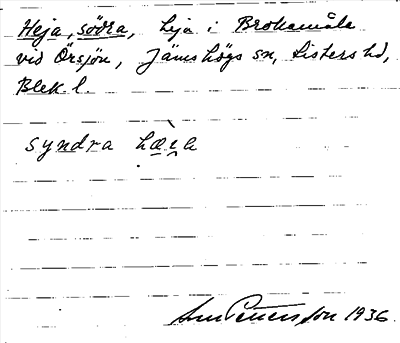 Heja, södra, heja i Brokamåla
vid Örsjön, Jämshögs sn, Listers hd,
Blek. l.
syndra
Pettersson 1936.